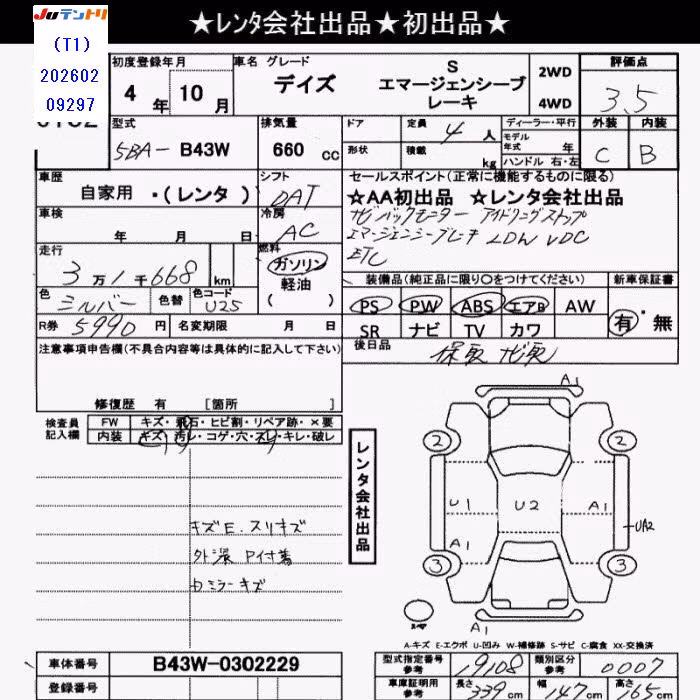 ★レンタ会社出品★初出品★
JUテントリ
(T1)
202602
09297
初度登録年月
4 年 10 月
車名 グレード
デイズ
S
エマージェンシーブ
レーキ
2WD
4WD
評価点
3.5
外装 内装
C B
型式
5BA- B43W
排気量
660 cc
ドア
定員
4 人
ディーラー・平行
モデル
年式 年
ハンドル 右・左
形状
積載
kg
車歴
自家用 ・(レンタ )
シフト
DAT
車検
年 月 日
冷房
AC
走行
3 万 1 千 668 km
燃料
ガソリン
軽油
( )
色
シルバー
色替
色コード
U25
R券 5990 円
名変期限 月 日
セールスポイント(正常に機能するものに限る)
☆AA初出品 ☆レンタ会社出品
ナビ バックモニター アイドリングストップ
エマージェンシーブレーキ LDW VDC
ETC
装備品(純正品に限り○をつけてください)
PS PW ABS エアB AW
SR ナビ TV カワ
新車保証書
有・無
後日品
保取 ナビ取
注意事項申告欄(不具合内容等は具体的に記入して下さい)
修復歴 有 [箇所 ]
検査員
記入欄
FW キズ・飛石・ヒビ割・リペア跡・×要
内装 キズ・汚レ・コゲ・穴・スレ・キレ・破レ
キズE. スリキズ
カミラーキズ
レンタ会社出品
A1
2 2
U1 U2 A1
A1 UA2
3 3
A-キズ E-エクボ U-凹み W-補修跡 S-サビ C-腐食 XX-交換済
車体番号 B43W-0302229
登録番号
型式指定番号
参考
19108
類別区分
参考
0007
車庫証明用
参考
長さ 339 cm
幅 147 cm
高さ 165 cm